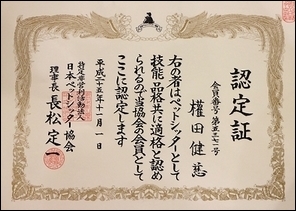 認定証
会員番号 第五三七二号
權田健慈
右の者はペットシッターとして
技能・品格共に適格と認め
られるので当協会の会員として
ここに認定します
平成二十五年十一月一日
特定非営利活動法人
日本ペットシッター協会
理事長 長松定一